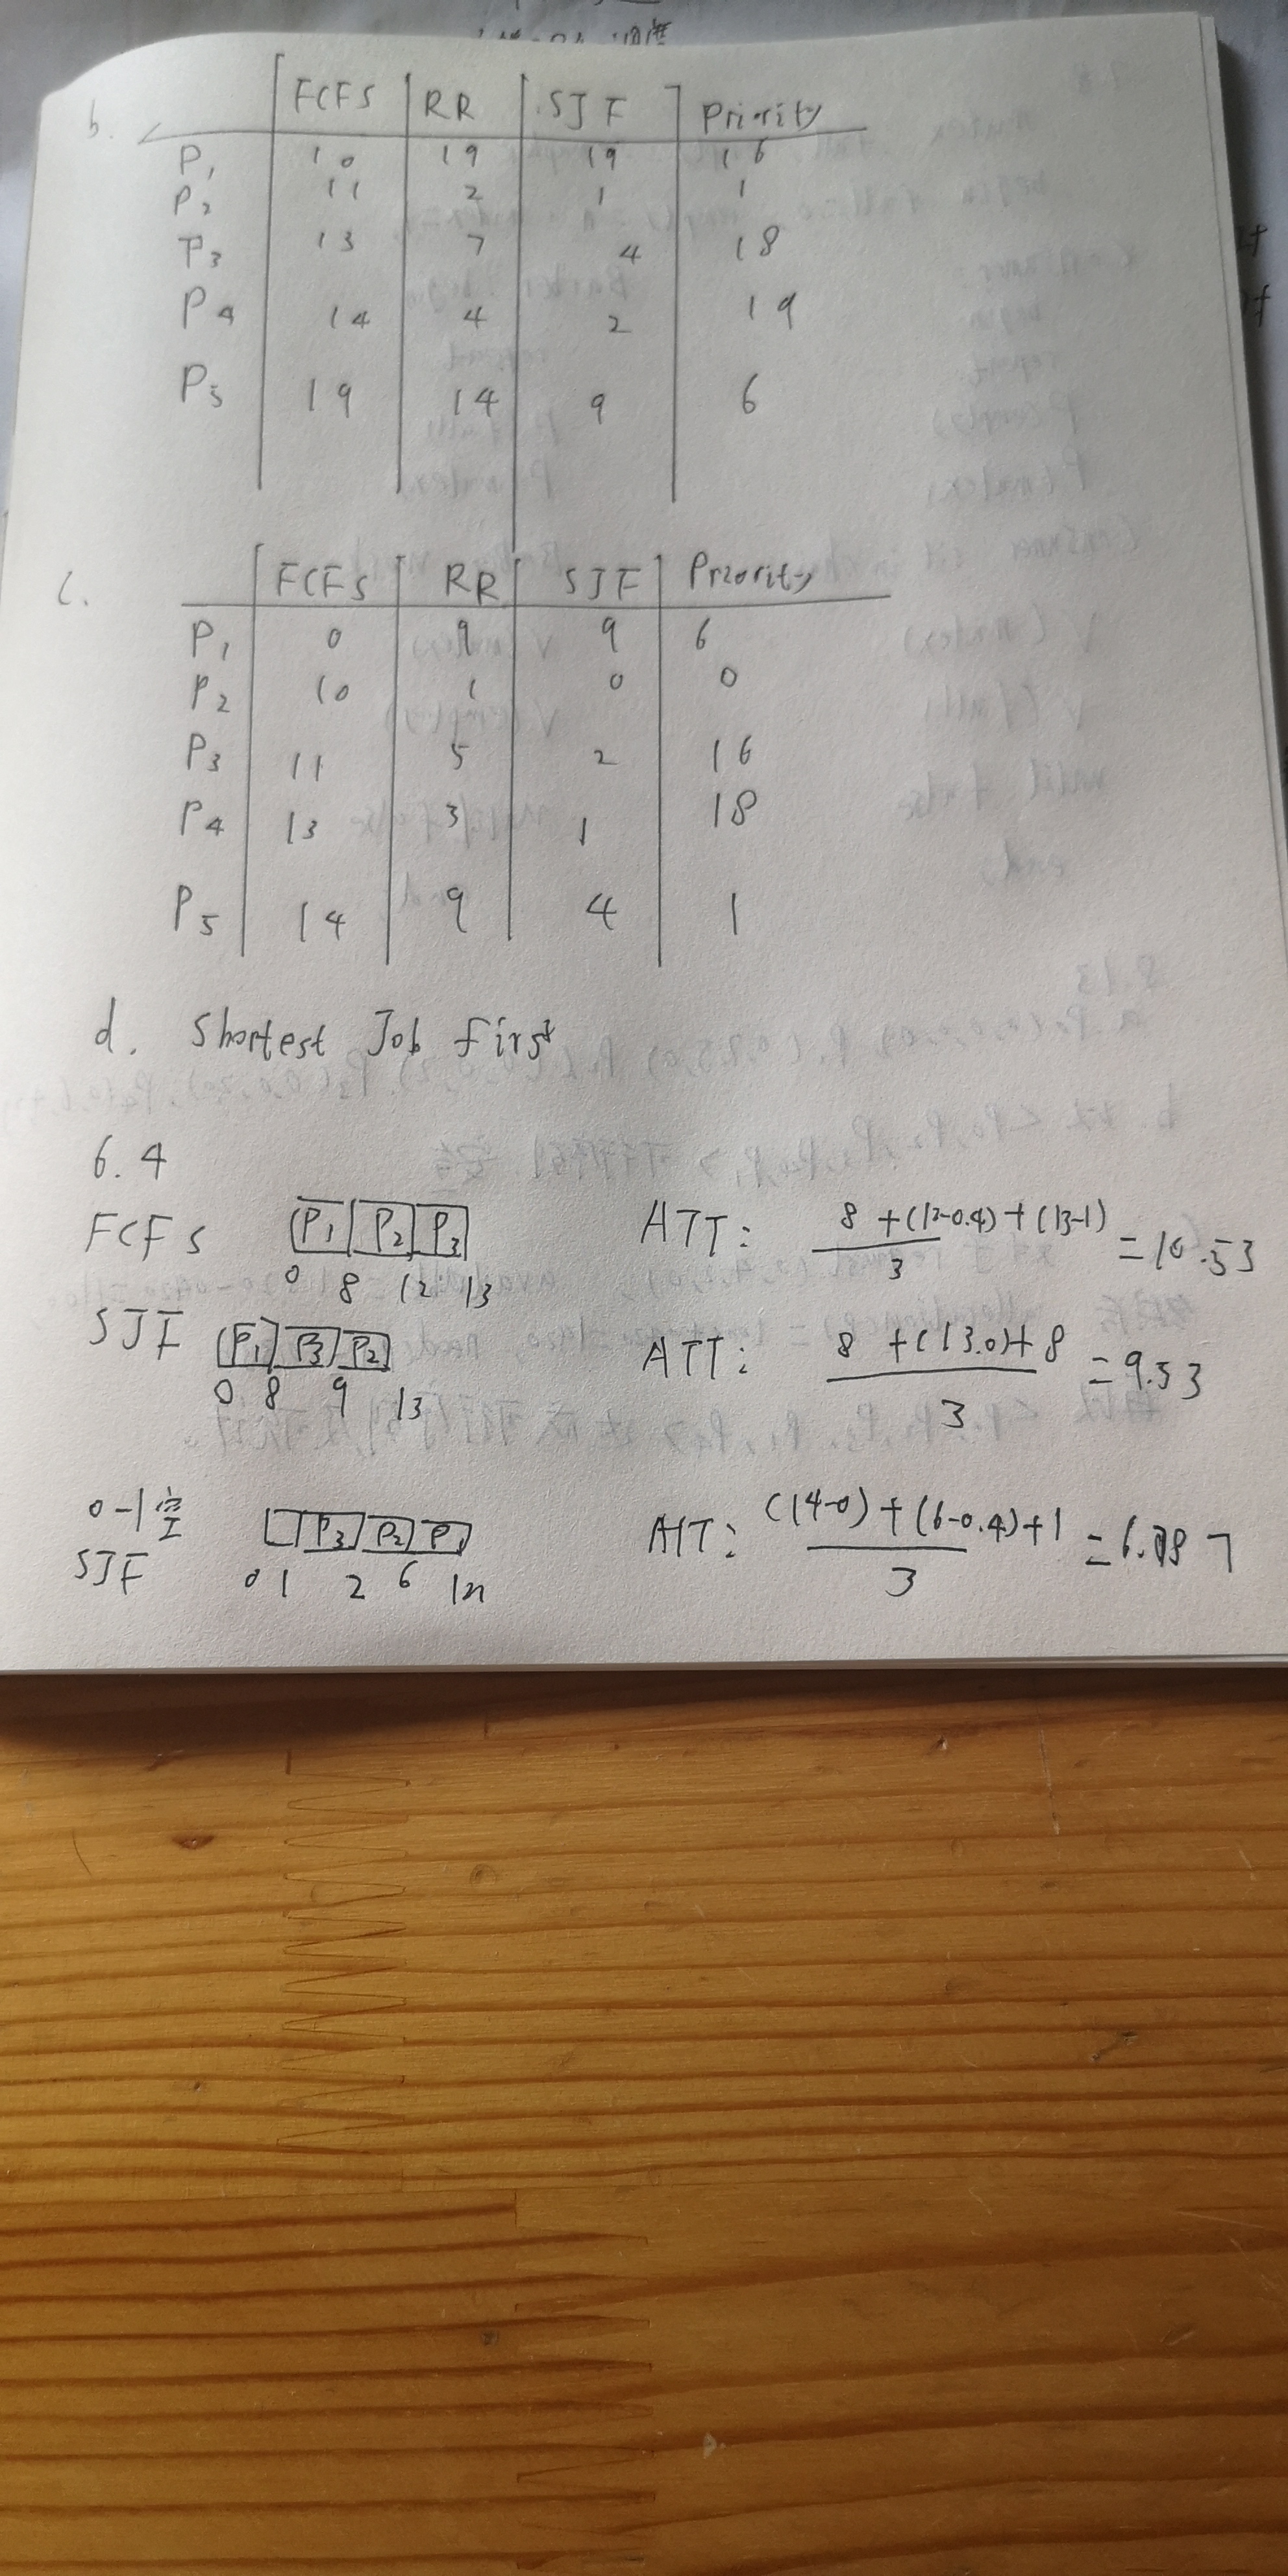 b. FCFS RR SJF Priority
P1 10 19 19 16
P2 11 2 1 1
P3 13 7 4 18
P4 14 4 2 19
P5 19 14 9 6
c. FCFS RR SJF Priority
P1 0 9 9 6
P2 10 1 0 0
P3 11 5 2 16
P4 13 3 1 18
P5 14 9 4 1
d. Shortest Job First
6.4
FCFS P1 P2 P3 ATT: 8 +(12-0.4)+(13-1) / 3 =10.53
0 8 12 13
SJF P1 P3 P2 ATT: 8 +(13.0)+8 / 3 =9.53
0 8 9 13
0-1空 P3 P2 P1 ATT: (14-0)+(6-0.4)+1 / 3
SJF 0 1 2 6